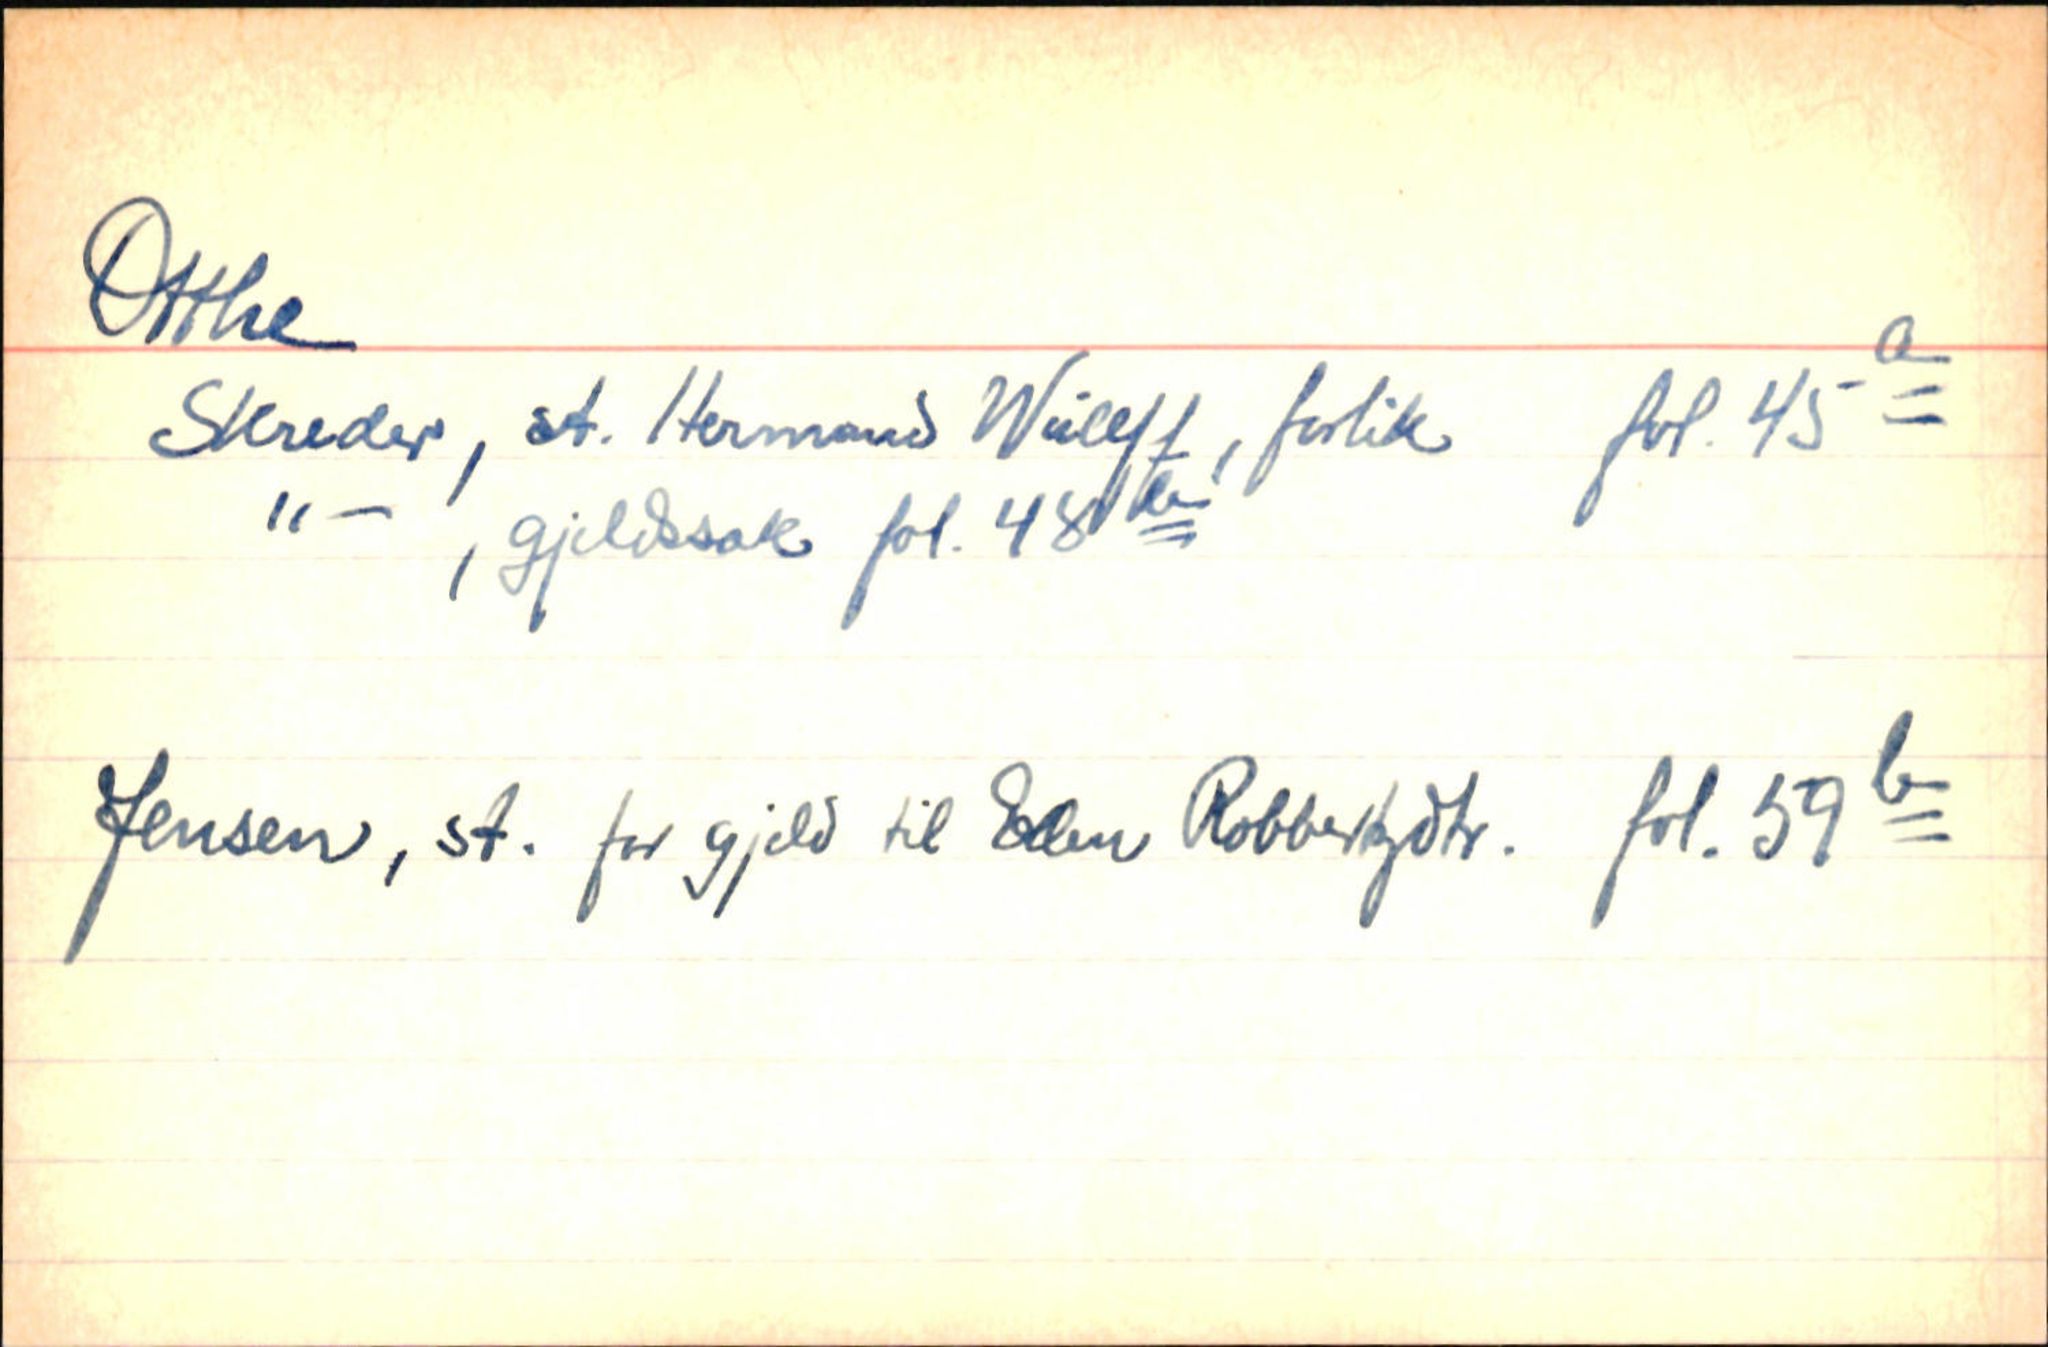 Otthe
Skreder, st. Hermand Wülff, forlik fol. 45 a
"— , gjeldssak fol. 48 b
Jensen, st. for gjeld til Elen Robbertzdtr. fol. 59 b